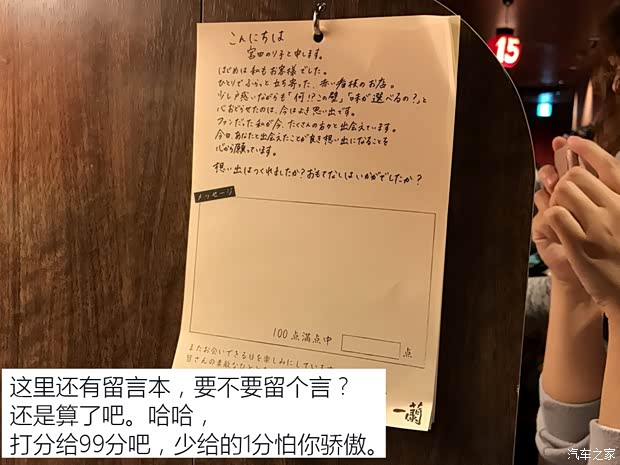 こんにちは
宮田のり子と申します。
はじめは私もお客様でした。
ひとりでふらっと立ち寄った、赤い看板のお店。
少し戸惑いながらも「何!?この壁」「味が選べるの?」と
心おどらせたのは、今はよき思い出です。
ファンだった私が今、たくさんの方々と出会えています。
今日、あなたと出会えたことが良き想い出になることを
心から願っています。
想い出はつくれましたか?おもてなしはいかがでしたか?
メッセージ
100点満点中
点
またお会いできる日を楽しみにしています
皆さんの素敵なひと
一蘭
15
这里还有留言本，要不要留个言？
还是算了吧。哈哈，
打分给99分吧，少给的1分怕你骄傲。
汽车之家